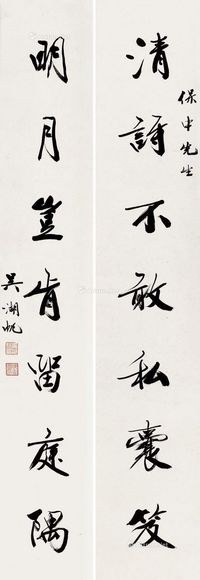 清詩不敢私囊笈
保中先生
明月豈肯留庭隅
吳湖帆